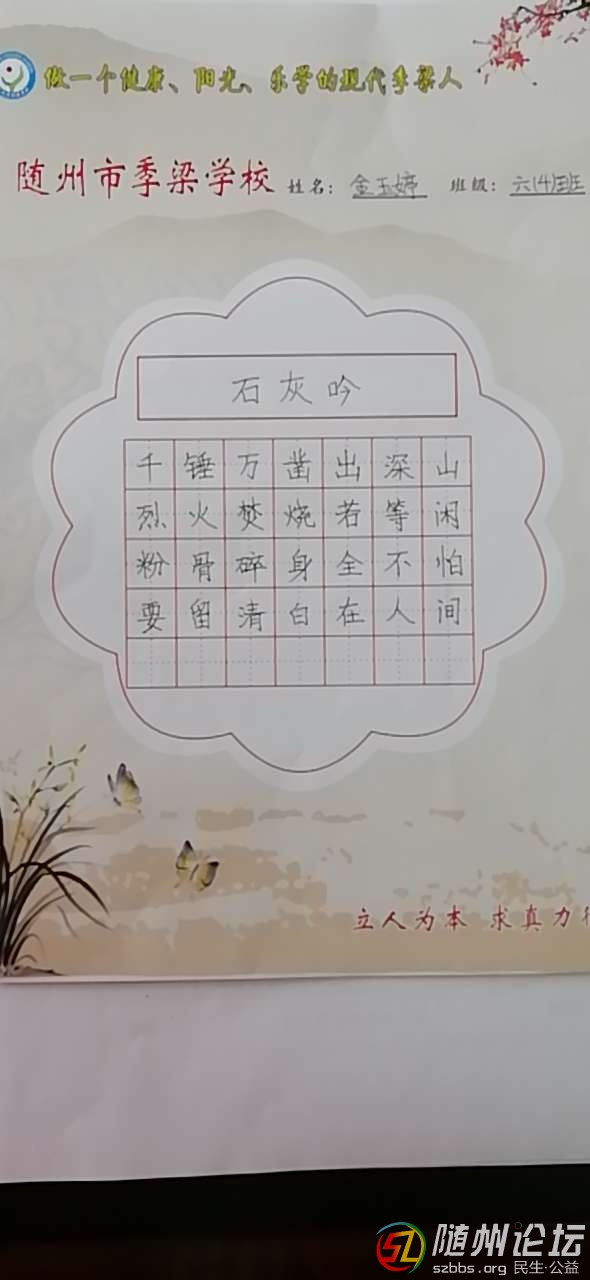 做一个健康、阳光、乐学的现代季梁人
随州市季梁学校 姓名：金玉婷 班级：六(4)班
石灰吟
千锤万凿出深山
烈火焚烧若等闲
粉骨碎身全不怕
要留清白在人间
立人为本 求真力行
随州论坛
szbbs.org 民生·公益